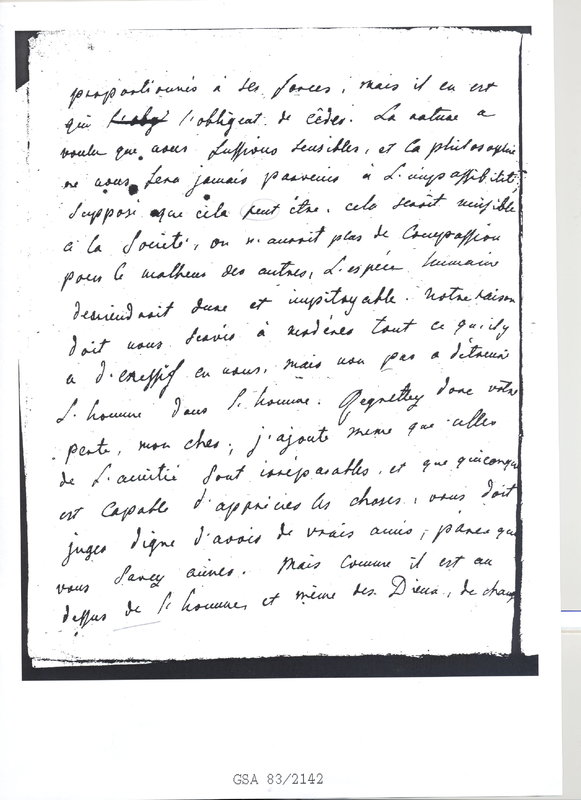 proportionnés à ses forces, mais il en est
qui l'obligent de cèdér. La nature a
voulu que nous fussions sensibles, et la philosophie
ne nous fera jamais parvenir à L'impassibilité,
Supposé que cela peut être. cela seroit nuisible
à la Societé, on n'auroit plus de Compassion
pour le malheur des autres, L'espéce humaine
deviendroit dure et impitoyable. Notre raison
doit nous servir à modérer tout ce qu'il y
a d'exessif en nous, mais non pas a détruire
L'homme dans l'homme. Regrettez donc votre
perte, mon cher, j'ajoute meme que celles
de L'amitié sont irréparables, et que quiconque
est capable d'apprécier les choses, vous doit
juger digne d'avoir de vrais amis, parce que
vous savez aimer. Mais comme il est au
dessus de l'homme, et même des Dieux, de chang
GSA 83/2142